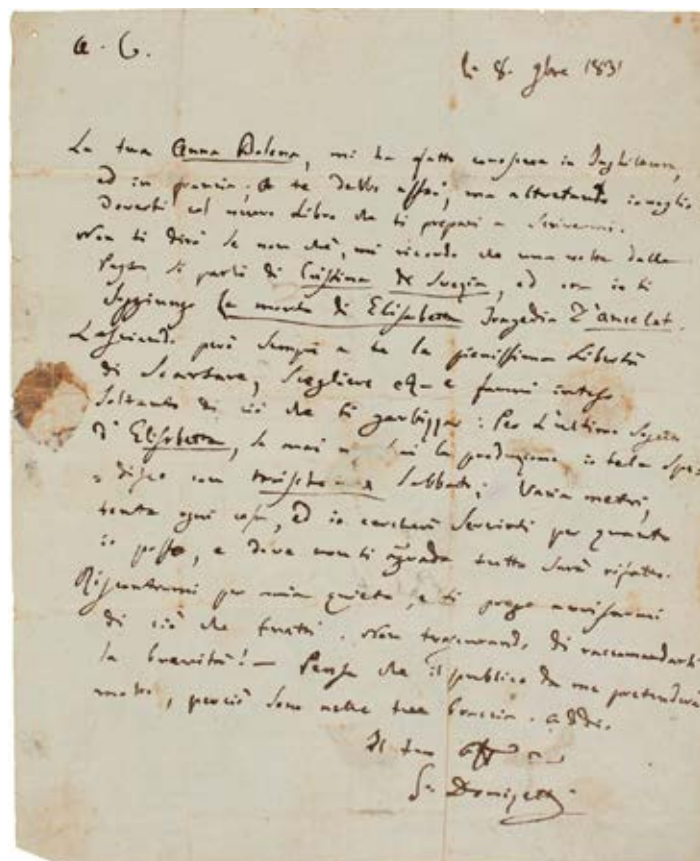 A. C.
li 8. 9bre 1831
La tua Anna Bolena, mi ha fatto conoscere in Inghilterra,
ed in francia; a te debbo assai, ma altretanto io voglio
doverti col nuovo Libro che ti prepari a scrivermi.
Non ti dirò se non che, mi ricordo che una volta dalla
Pasta si parlò di Cristina di Svezia, ed ora io ti
soggiungo La morte di Elisabetta Tragedia d'Ancelot.
Lasciando però sempre a te la pienissima Libertà
di scartare, scegliere e farmi inteso
soltanto di ciò che ti garbizza: Per l'ultima
d'Elisabetta, se mai la produzione, io te la spe-
= disco con Sabbati; Varia metri,
tenta ogni cosa, ed io cercherò servirti per quanto
io posso, e dove non ti aggrada tutto sarà rifatto.
Riscontrami per mia quiete, e ti prego avvisarmi
di ciò che tratti. Non trascurando di raccomandarti
la brevità! — Pensa che il publico da me pretenderà
molto, perciò sono nelle tue braccia. addio.
Il tuo aff
Donizetti